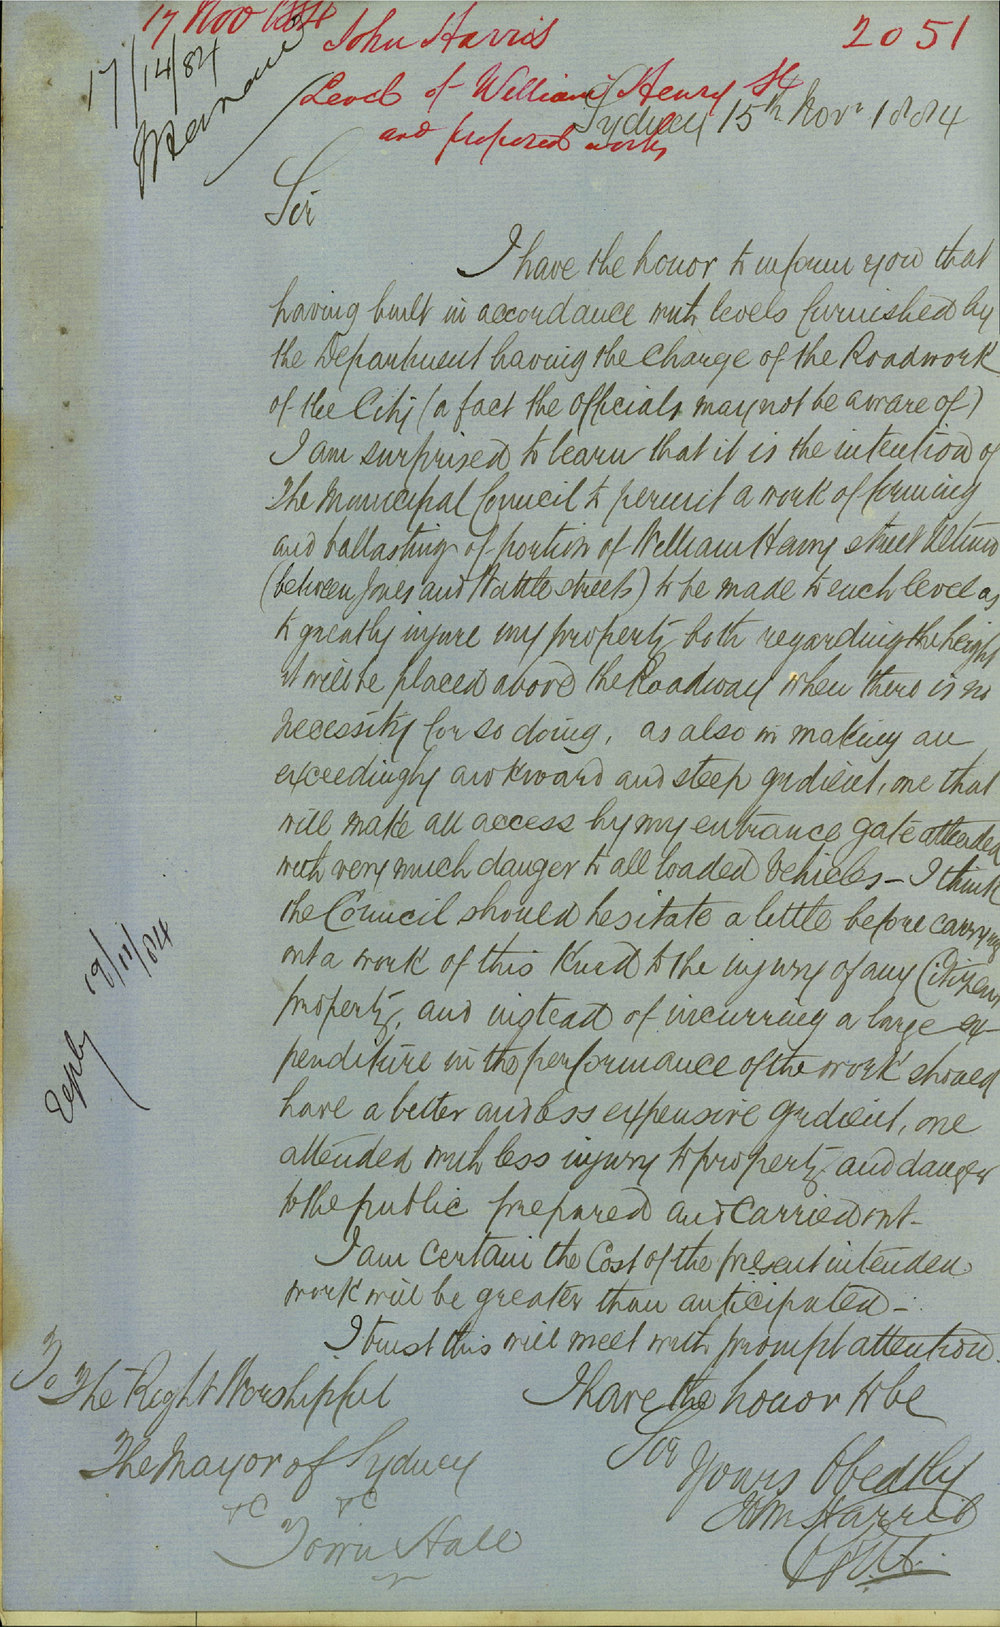 17 Nov 1884
John Harris
2051
17/14/84
Level of William Henry St
and proposed works
Sydney 15th Novr 1884
Sir
I have the honor to inform you that
having built in accordance with levels furnished by
the Department having the Charge of the Roadwork
of the City (a fact the officials may not be aware of)
I am surprised to learn that it is the intention of
The Municipal Council to permit a work of forming
and ballasting of portion of William Henry street
(between Jones and Wattle streets) to be made to such level as
to greatly injure my property both regarding the height
it will be placed above the Roadway when there is no
necessity for so doing, as also in making an
exceedingly awkward and steep gradient, one that
will make all access by my entrance gate attended
with very much danger to all loaded Vehicles – I think
the Council should hesitate a little before carrying
out a work of this kind to the injury of any Citizens
property, and instead of incurring a large ex-
penditure in the performance of the work should
have a better and less expensive gradient, one
attended with less injury to property and danger
to the public prepared and carried out –
I am certain the Cost of the present intended
work will be greater than anticipated –
I trust this will meet with prompt attention.
I have the honor to be
Sir
Yours Obedtly
John Harris
Reply 19/11/84
To The Right Worshipful
The Mayor of Sydney
&c &c
Town Hall